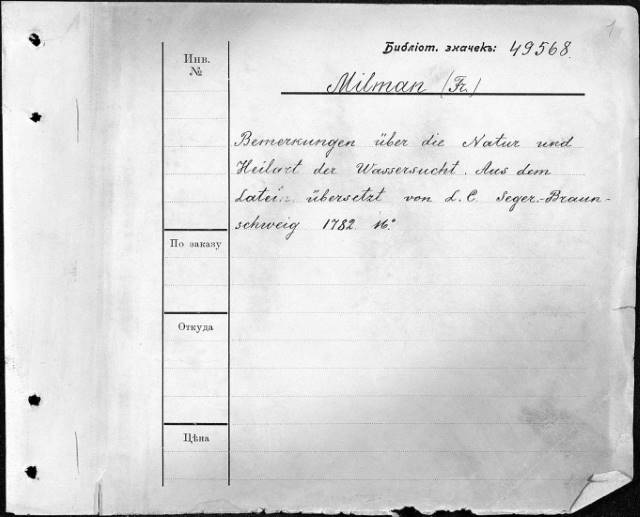 Библіот. значекъ: 49568
Инв.
№
Milman (Fr.)
Bemerkungen über die Natur und
Heilart der Wassersucht. Aus dem
Latein. übersetzt von L. C. Seger.-Braun-
schweig 1782 16°
По заказу
Откуда
Цѣна